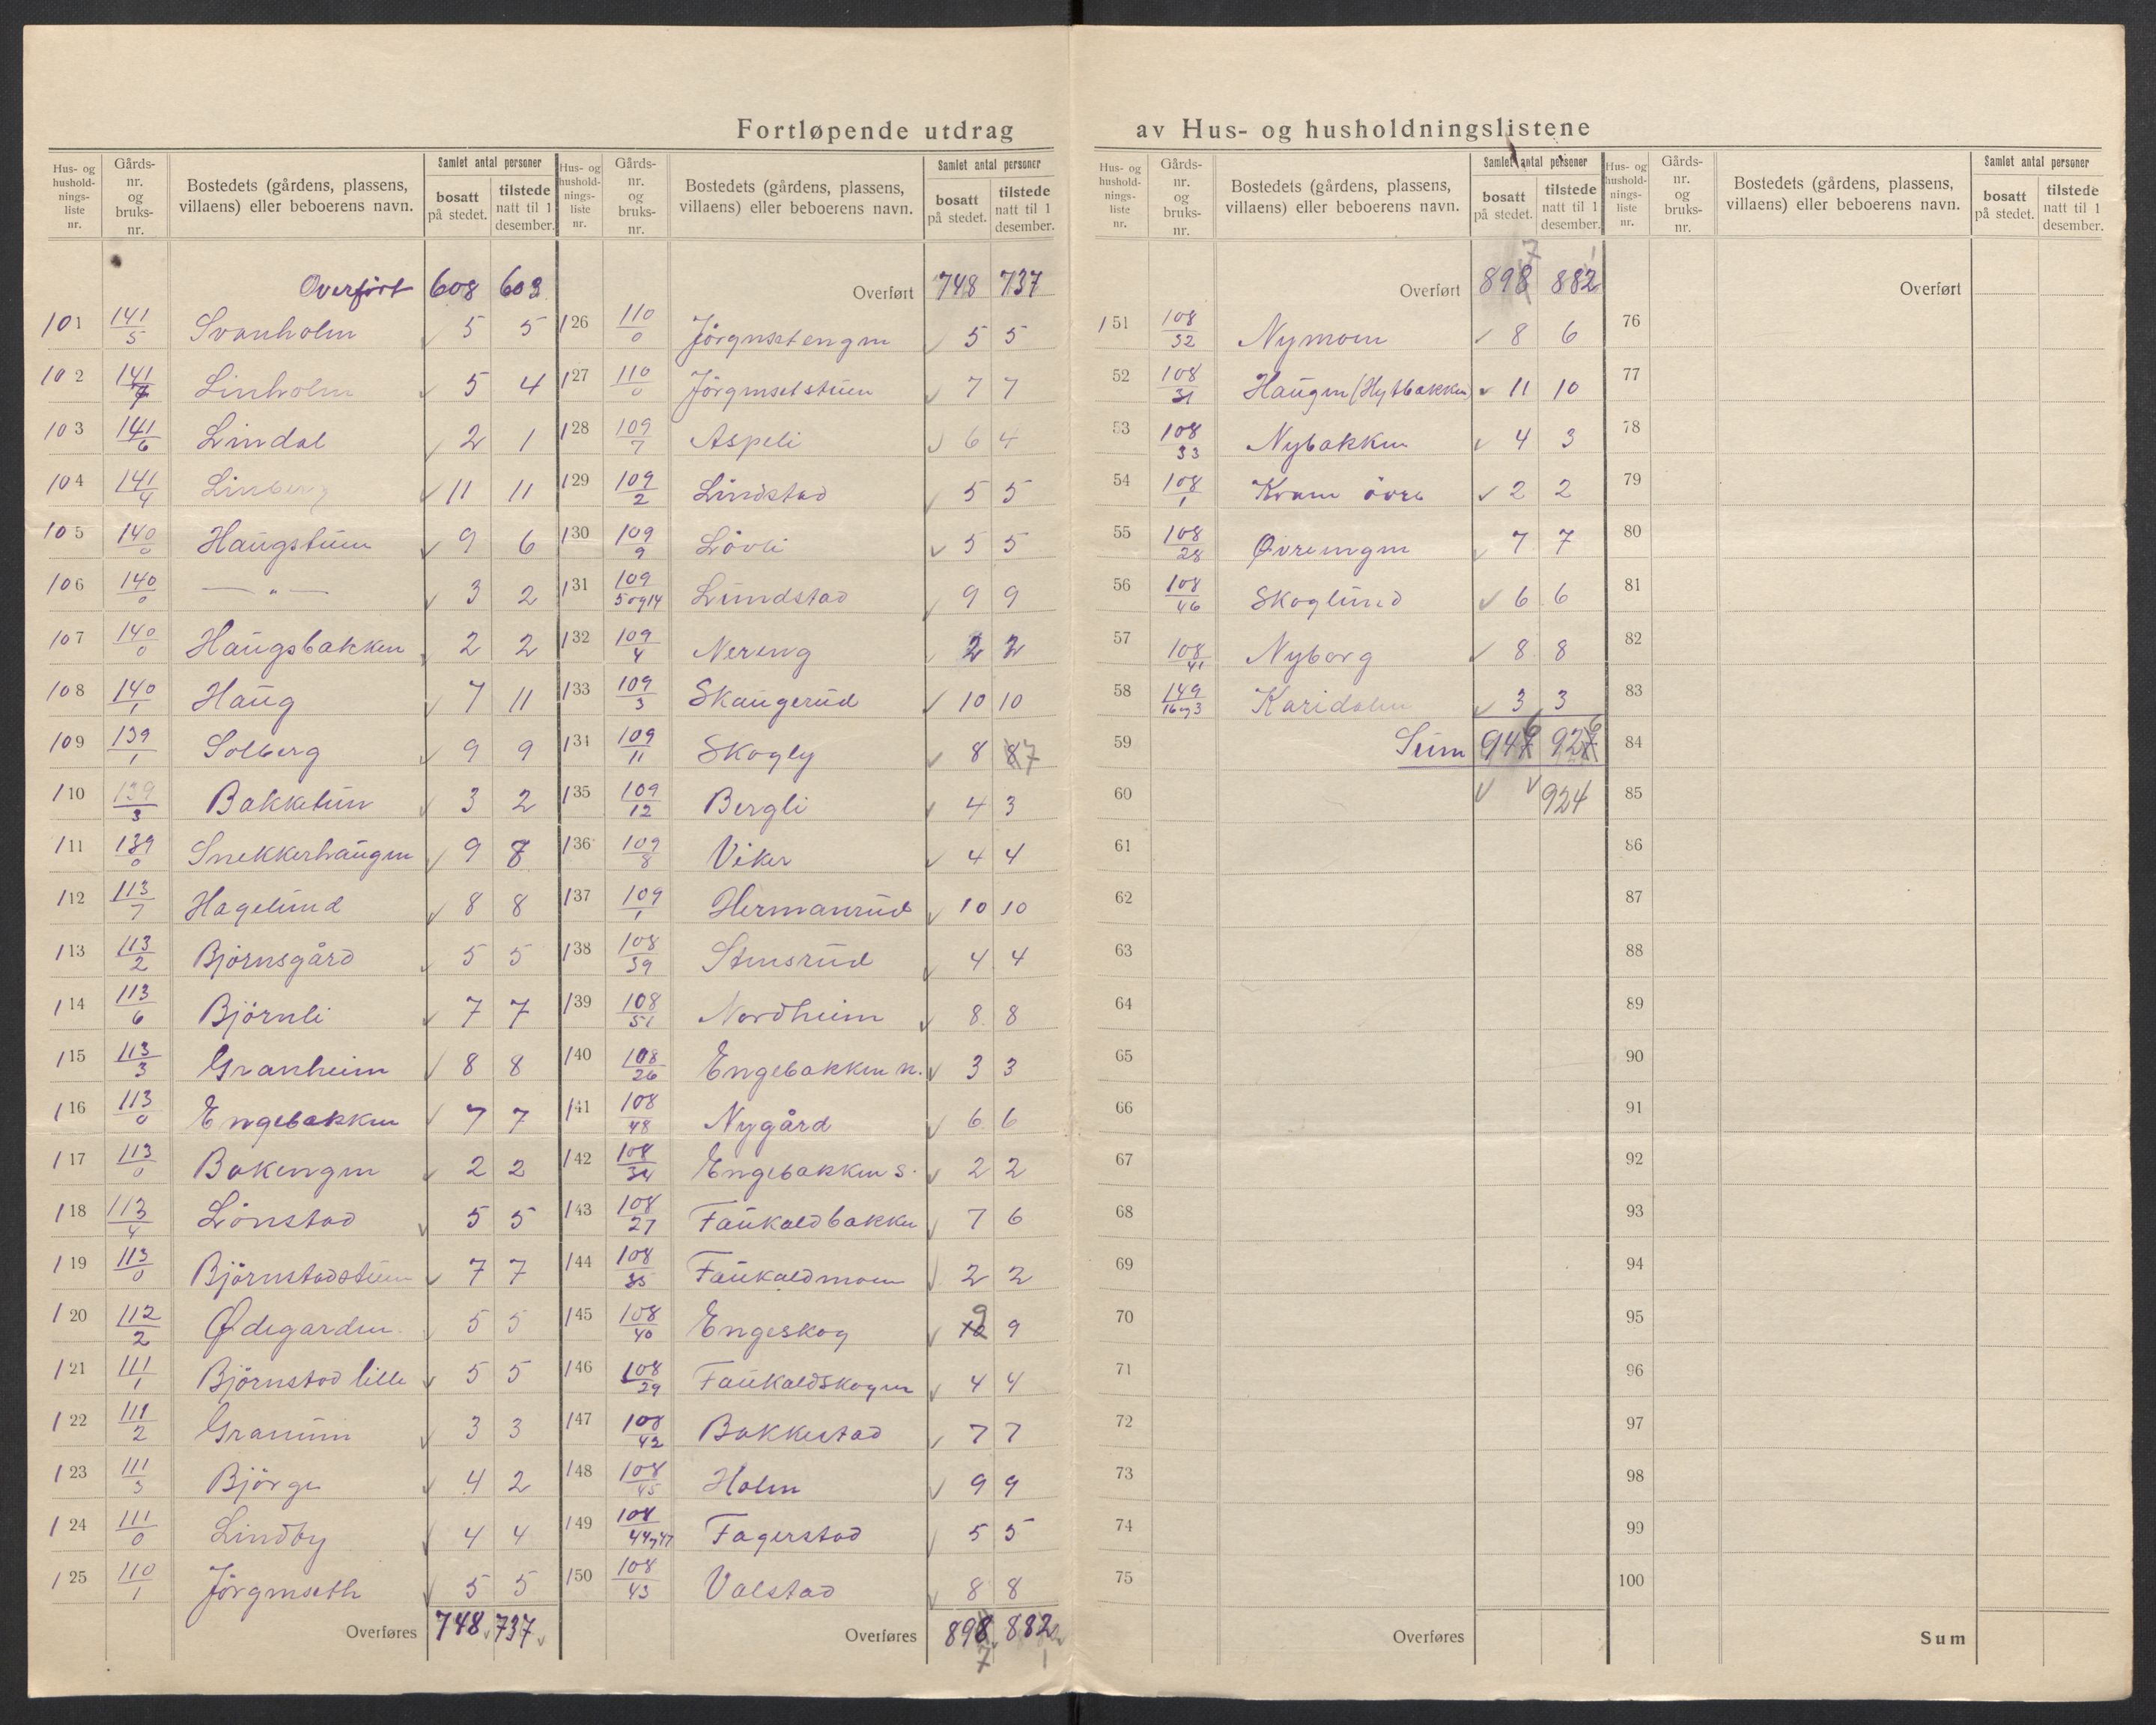 Fortløpende utdrag av Hus- og husholdningslistene
Hus- og husholdnings- liste nr. | Gårds- nr. og bruks- nr. | Bostedets (gårdens, plassens, villaens) eller beboerens navn. | Samlet antal personer bosatt på stedet. | tilstede natt til 1 desember.
Overført 608 603
101 141/5 Svanholm 5 5
102 141/7 Linholm 5 4
103 141/6 Lindal 2 1
104 141/4 Linberg 11 11
105 140/0 Haugstuen 9 6
106 140/0 — " — 3 2
107 140/0 Haugsbakken 2 2
108 140/1 Haug 7 11
109 139/1 Solberg 9 9
110 139/3 Bakketun 3 2
111 139/0 Snekkerhaugen 9 8
112 113/7 Hagelund 8 8
113 113/2 Björnsgård 5 5
114 113/6 Björnli 7 7
115 113/3 Granheim 8 8
116 113/0 Engebakken 7 7
117 113/0 Bakengen 2 2
118 113/4 Lönstad 5 5
119 113/0 Björnstadstuen 7 7
120 112/2 Ødegarden 5 5
121 111/1 Björnstad lille 5 5
122 111/2 Granum 3 3
123 111/3 Björge 4 2
124 111/0 Lindby 4 4
125 110/1 Jörgenseth 5 5
Overføres 748 737
Hus- og husholdnings- liste nr. | Gårds- nr. og bruks- nr. | Bostedets (gårdens, plassens, villaens) eller beboerens navn. | Samlet antal personer bosatt på stedet. | tilstede natt til 1 desember.
Overført 748 737
126 110/0 Jörgensetengen 5 5
127 110/0 Jörgensetstuen 7 7
128 109/7 Aspeli 6 4
129 109/2 Lindstad 5 5
130 109/9 Lövli 5 5
131 109/5 og 14 Lundstad 9 9
132 109/4 Nereng 2 2
133 109/3 Skaugerud 10 10
134 109/11 Skogly 8 8 7
135 109/12 Bergli 4 3
136 109/8 Viker 4 4
137 109/1 Hermanrud 10 10
138 108/39 Stensrud 4 4
139 108/51 Nordheim 8 8
140 108/26 Engebakken n. 3 3
141 108/48 Nygård 6 6
142 108/34 Engebakken s. 2 2
143 108/27 Faukaldbakken 7 6
144 108/35 Faukaldmoen 2 2
145 108/40 Engeskog 10 9 9
146 108/29 Faukaldskogen 4 4
147 108/42 Bakkestad 7 7
148 108/45 Holm 9 9
149 108/44 og 47 Fagerstad 5 5
150 108/43 Valstad 8 8
Overføres 898 882
7 1
Hus- og husholdnings- liste nr. | Gårds- nr. og bruks- nr. | Bostedets (gårdens, plassens, villaens) eller beboerens navn. | Samlet antal personer bosatt på stedet. | tilstede natt til 1 desember.
7 1
Overført 898 882
151 108/32 Nymoen 8 6
52 108/31 Haugen (Hytbakken) 11 10
53 108/33 Nybakken 4 3
54 108/1 Kvam övre 2 2
55 108/28 Øvreengen 7 7
56 108/46 Skoglund 6 6
57 108/41 Nyborg 8 8
58 149/16 og 3 Karidalen 3 3
59 Sum 947 6 927 6
60 924
61
62
63
64
65
66
67
68
69
70
71
72
73
74
75
Overføres
Hus- og husholdnings- liste nr. | Gårds- nr. og bruks- nr. | Bostedets (gårdens, plassens, villaens) eller beboerens navn. | Samlet antal personer bosatt på stedet. | tilstede natt til 1 desember.
Overført
76
77
78
79
80
81
82
83
84
85
86
87
88
89
90
91
92
93
94
95
96
97
98
99
100
Sum